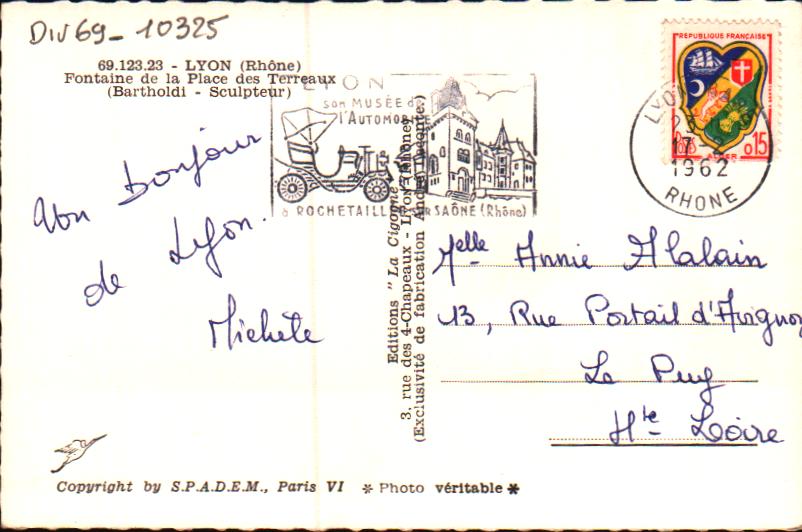 Div 69_ 10325
69.123.23 - LYON (Rhône)
Fontaine de la Place des Terreaux
(Bartholdi - Sculpteur)
LYON
son MUSÉE de
l'AUTOMOBILE
à ROCHETAILLÉE sur SAÔNE (Rhône)
REPUBLIQUE FRANÇAISE
0,15
POSTES
ALGER
LYON
17-2
1962
RHONE
bonjour
de Lyon.
Michèle
Editions "La Cigogne"
3, rue des 4-Chapeaux - Lyon (Rhône)
(Exclusivité de fabrication André Leconte.)
Melle Annie Alalain
13, Rue Portail d'Avignon
Le Puy
Hte Loire
Copyright by S.P.A.D.E.M., Paris VI * Photo véritable *